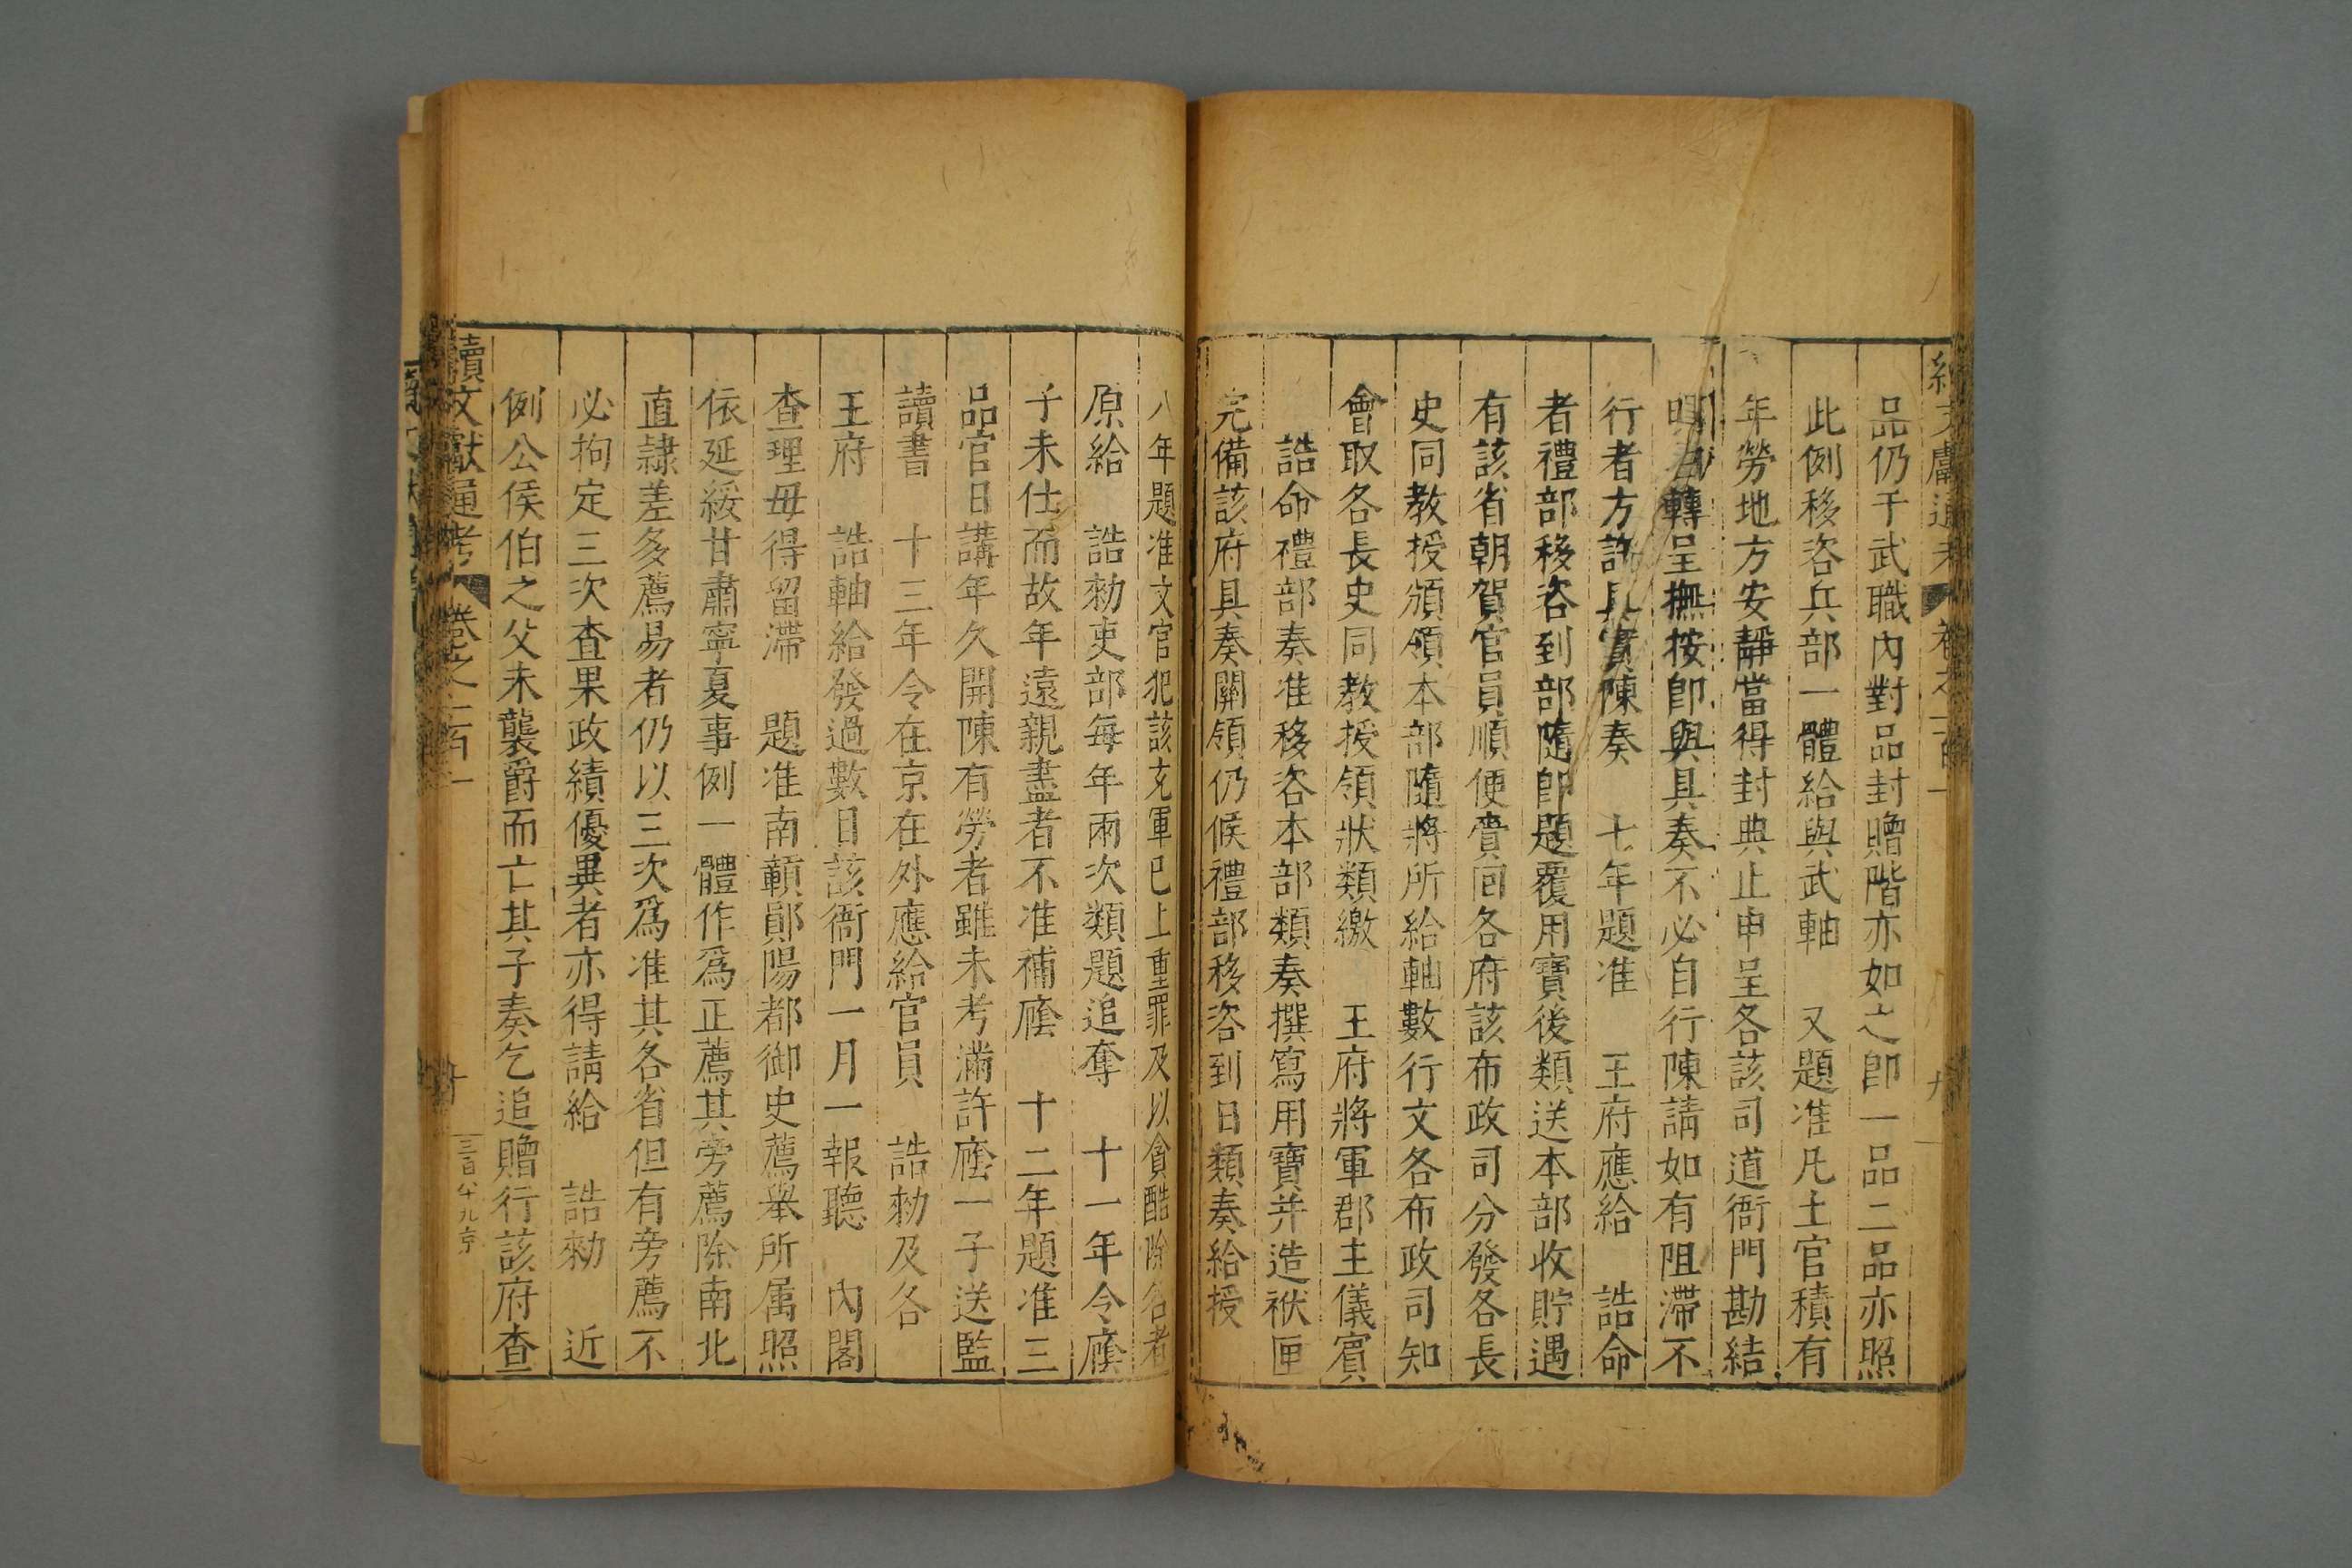 品仍于武職內對品封贈階亦如之卽一品二品亦照
此例移咨兵部一體給與武軸　又題准凡土官積有
年勞地方安靜當得封典止申呈各該司道衙門勘結
明轉呈撫按卽與具奏不必自行陳請如有阻滯不
行者方許具實陳奏　七年題准　王府應給　誥命
者禮部移咨到部隨卽題覆用寶後類送本部收貯遇
有該省朝賀官員順便賫囘各府該布政司分發各長
史同教授頒領本部隨將所給軸數行文各布政司知
會取各長史同教授領狀類繳　王府將軍郡主儀賓
誥命禮部奏准移咨本部類奏撰寫用寶并造袱匣
完備該府具奏關領仍候禮部移咨到日類奏給授
八年題准文官犯該充軍已上重罪及以貪酷除名者
原給　誥勑吏部每年兩次類題追奪　十一年令廕
子未仕而故年遠親盡者不准補廕　十二年題准三
品官日講年久開陳有勞者雖未考滿許廕一子送監
讀書　十三年令在京在外應給官員　誥勑及各
王府　誥軸給發過數日該衙門一月一報聽　內閣
查理毋得留滯　題准南贑鄖陽都御史薦舉所属照
依延綏甘肅寧夏事例一體作爲正薦其旁薦除南北
直隷差多薦易者仍以三次爲准其各省但有旁薦不
必拘定三次查果政績優異者亦得請給　誥勑　近
例公侯伯之父未襲爵而亡其子奏乞追贈行該府查
續文獻通考　卷之二百一
三百八十九京